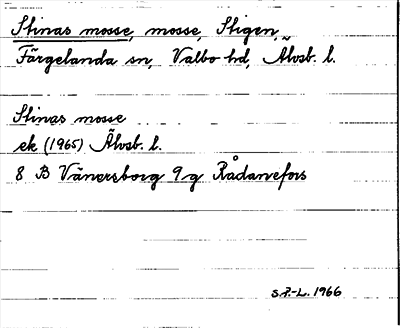 Stinas mosse, mosse, Stigen,
Färgelanda sn, Valbo hd, Älvsb. l.
Stinas mosse
ek (1965) Älvsb. l.
8 B Vänersborg 9 g Rådanefors
S.F.-L. 1966